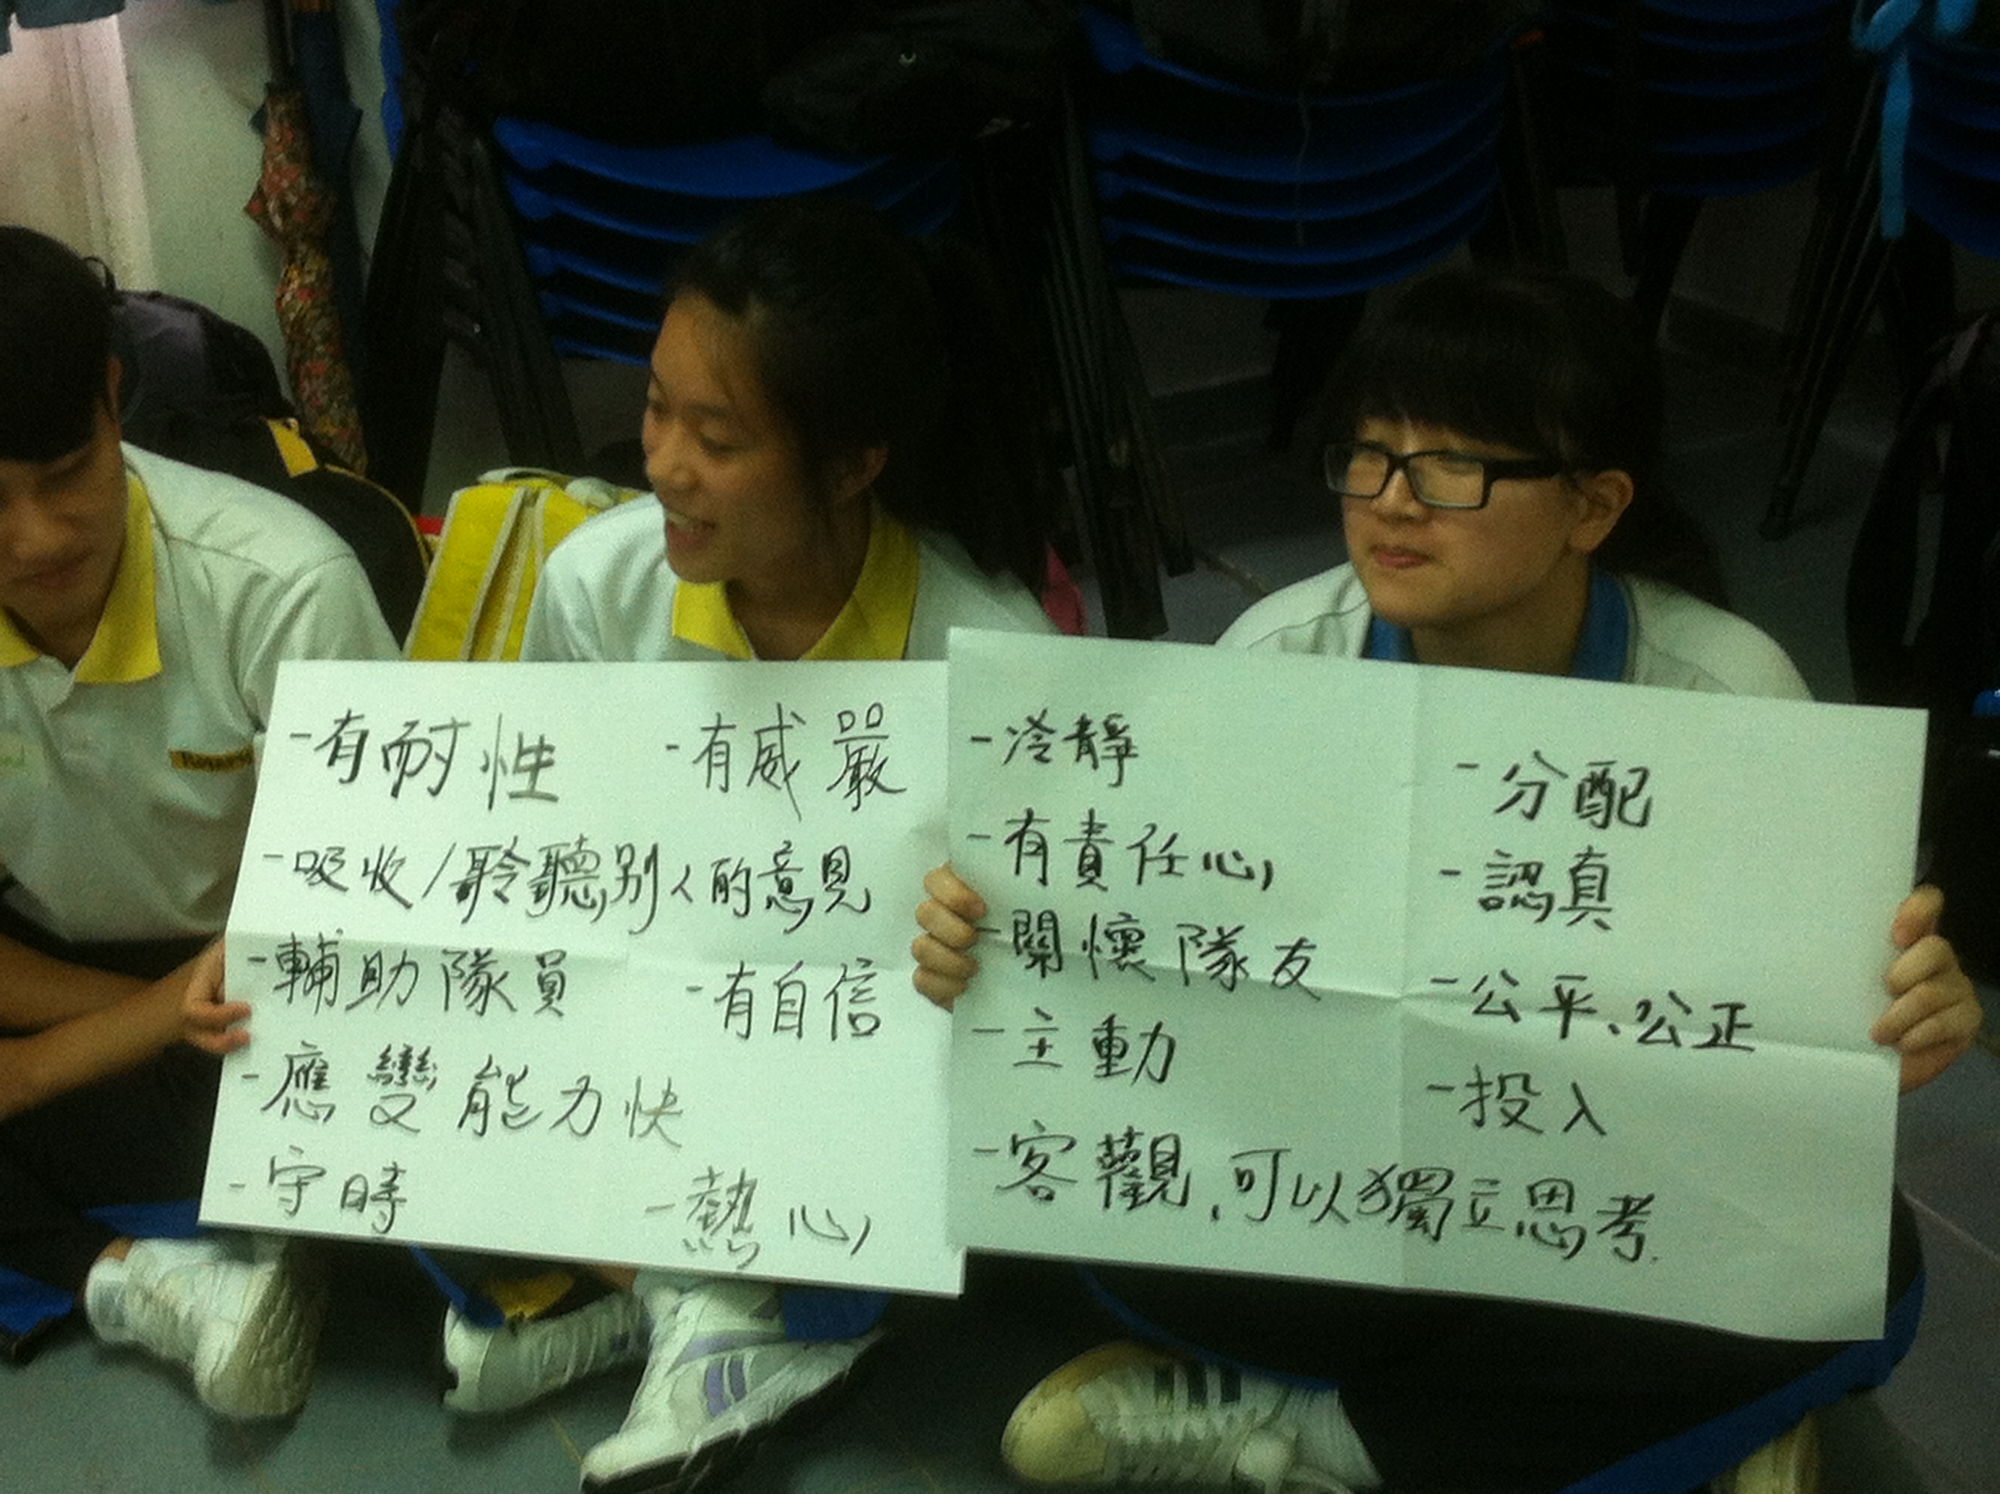 -有耐性 -有威嚴
-吸收/聆聽別人的意見
-輔助隊員 -有自信
-應變能力快
-守時 -熱心
-冷靜 -分配
-有責任心 -認真
-關懷隊友 -公平、公正
-主動 -投入
-客觀、可以獨立思考.